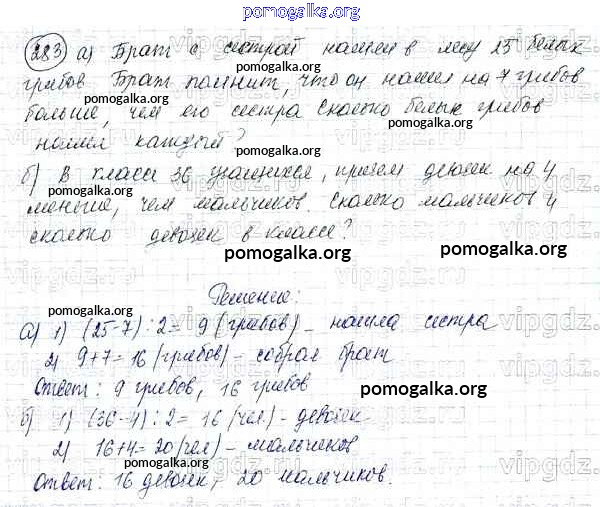 pomogalka.org
283 а) Брат с сестрой нашли в лесу 25 белых
грибов Брат помнит, что он нашел на 7 грибов
больше, чем его сестра Сколько белых грибов
нашел каждый?
pomogalka.org
б) В классе 36 учащихся, причем девочек на 4
pomogalka.org
меньше, чем мальчиков. Сколько мальчиков и
сколько девочек в классе?
pomogalka.org
pomogalka.org
Решение:
pomogalka.org
а) 1) (25-7):2= 9 (грибов) – нашла сестра
2) 9+7=16 (грибов) – собрал брат
pomogalka.org
Ответ: 9 грибов, 16 грибов
pomogalka.org
б) 1) (36-4):2= 16 (чел) - девочек
2) 16+4= 20 (чел) – мальчиков
pomogalka.org
Ответ: 16 девочек, 20 мальчиков.
pomogalka.org